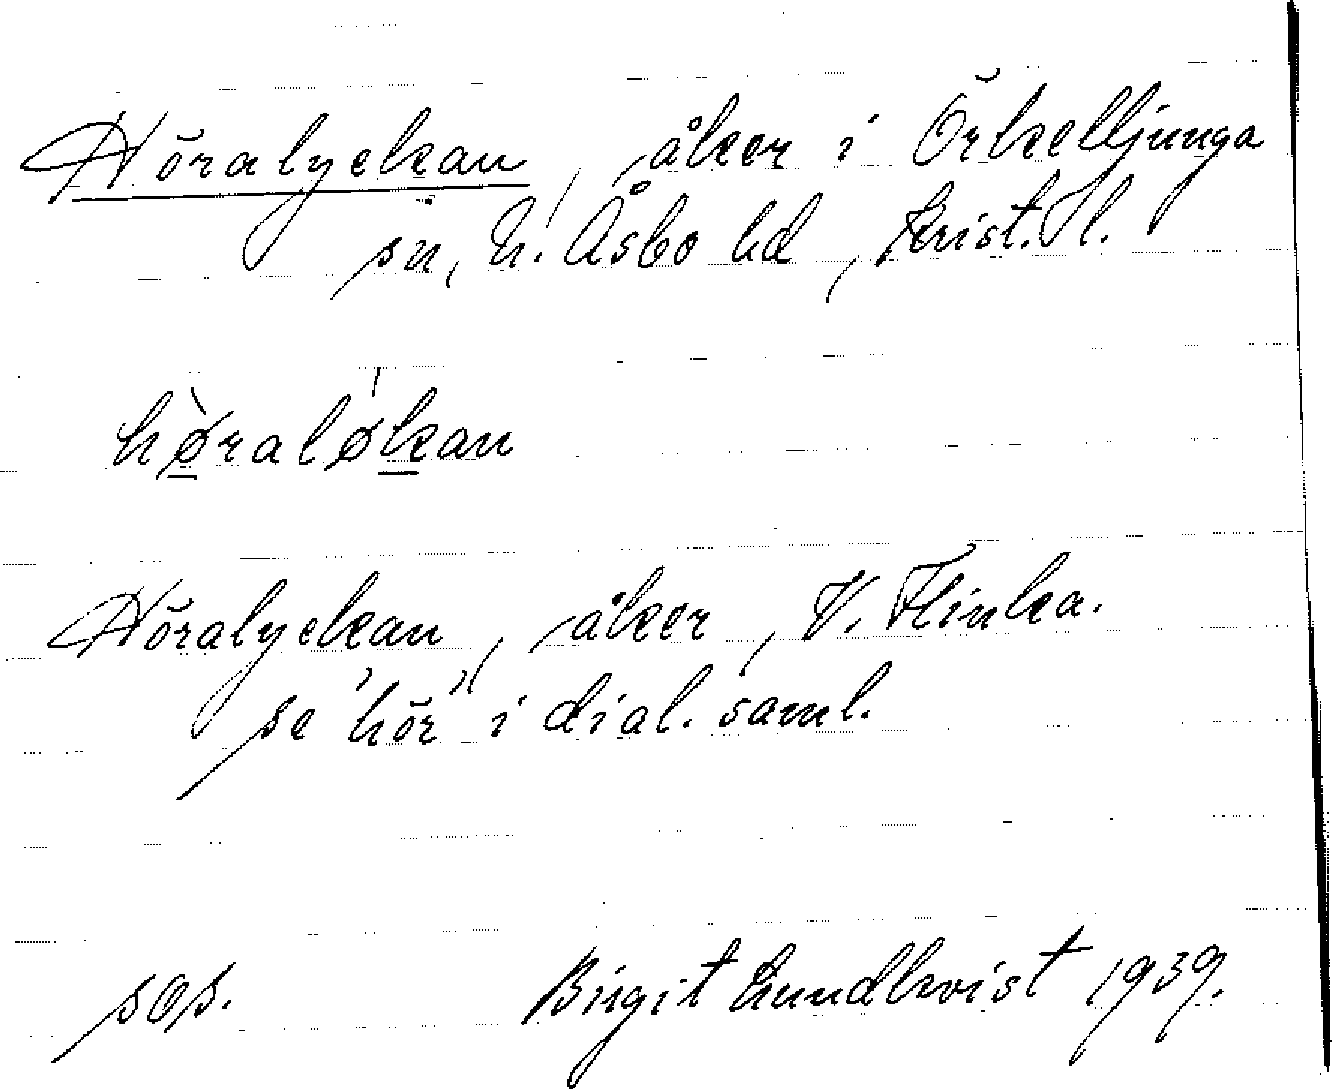 Höralyckan, åker i Örkelljunga
sn, N. Åsbo hd, Krist. l.
hø̱̀ralǿḵan
Höralyckan, åker, V. Flinka.
se "hör" i dial. saml.
sås.      Birgit Lundkvist 1939.